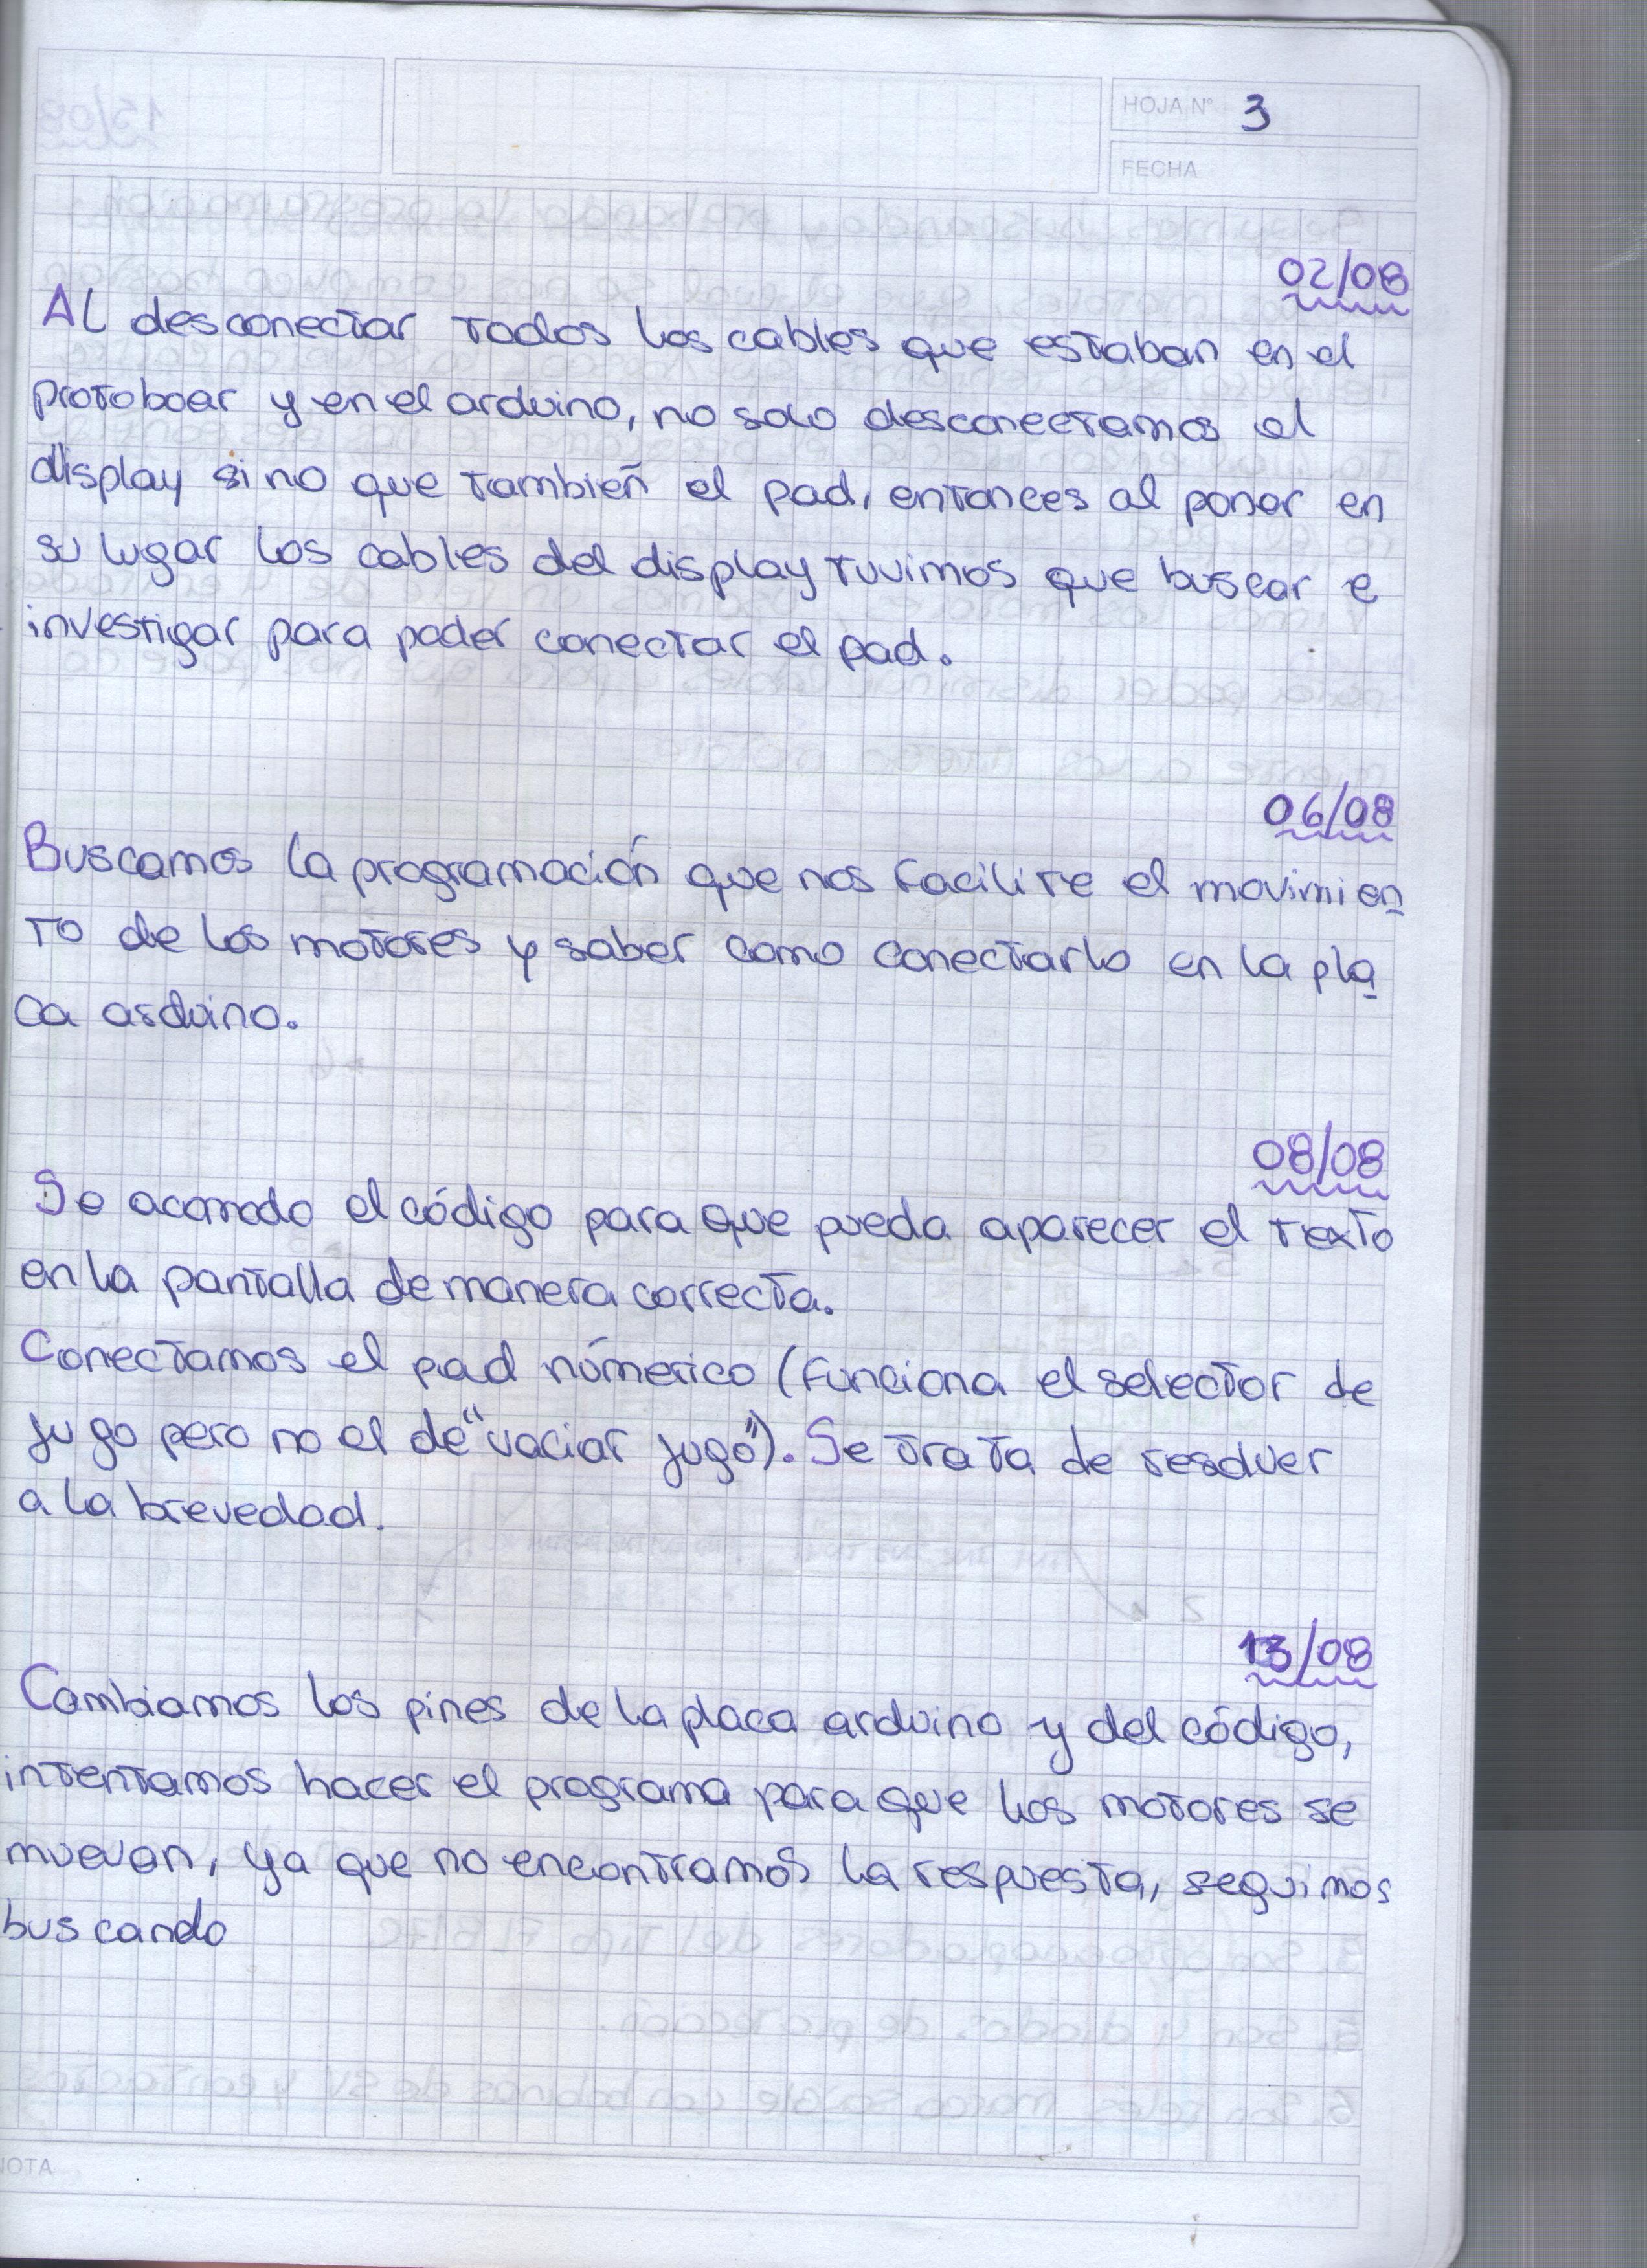 HOJA N° 3
FECHA
02/08
Al desconectar todos los cables que estaban en el
protoboar y en el arduino, no solo desconectamos el
display si no que tambień el pad, entonces al poner en
su lugar los cables del display tuvimos que buscar e
investigar para poder conectar el pad.
06/08
Buscamos la programación que nos facilite el movimien
to de los motores y saber como conectarlo en la pla
ca arduino.
08/08
Se acomodo el código para que pueda aparecer el texto
en la pantalla de manera correcta.
Conectamos el pad númerico (funciona el selector de
jugo pero no el de "vaciar jugo"). Se trata de resolver
a la brevedad.
13/08
Cambiamos los pines de la placa arduino y del código,
intentamos hacer el programa para que los motores se
muevan, ya que no encontramos la respuesta, seguimos
buscando
NOTA